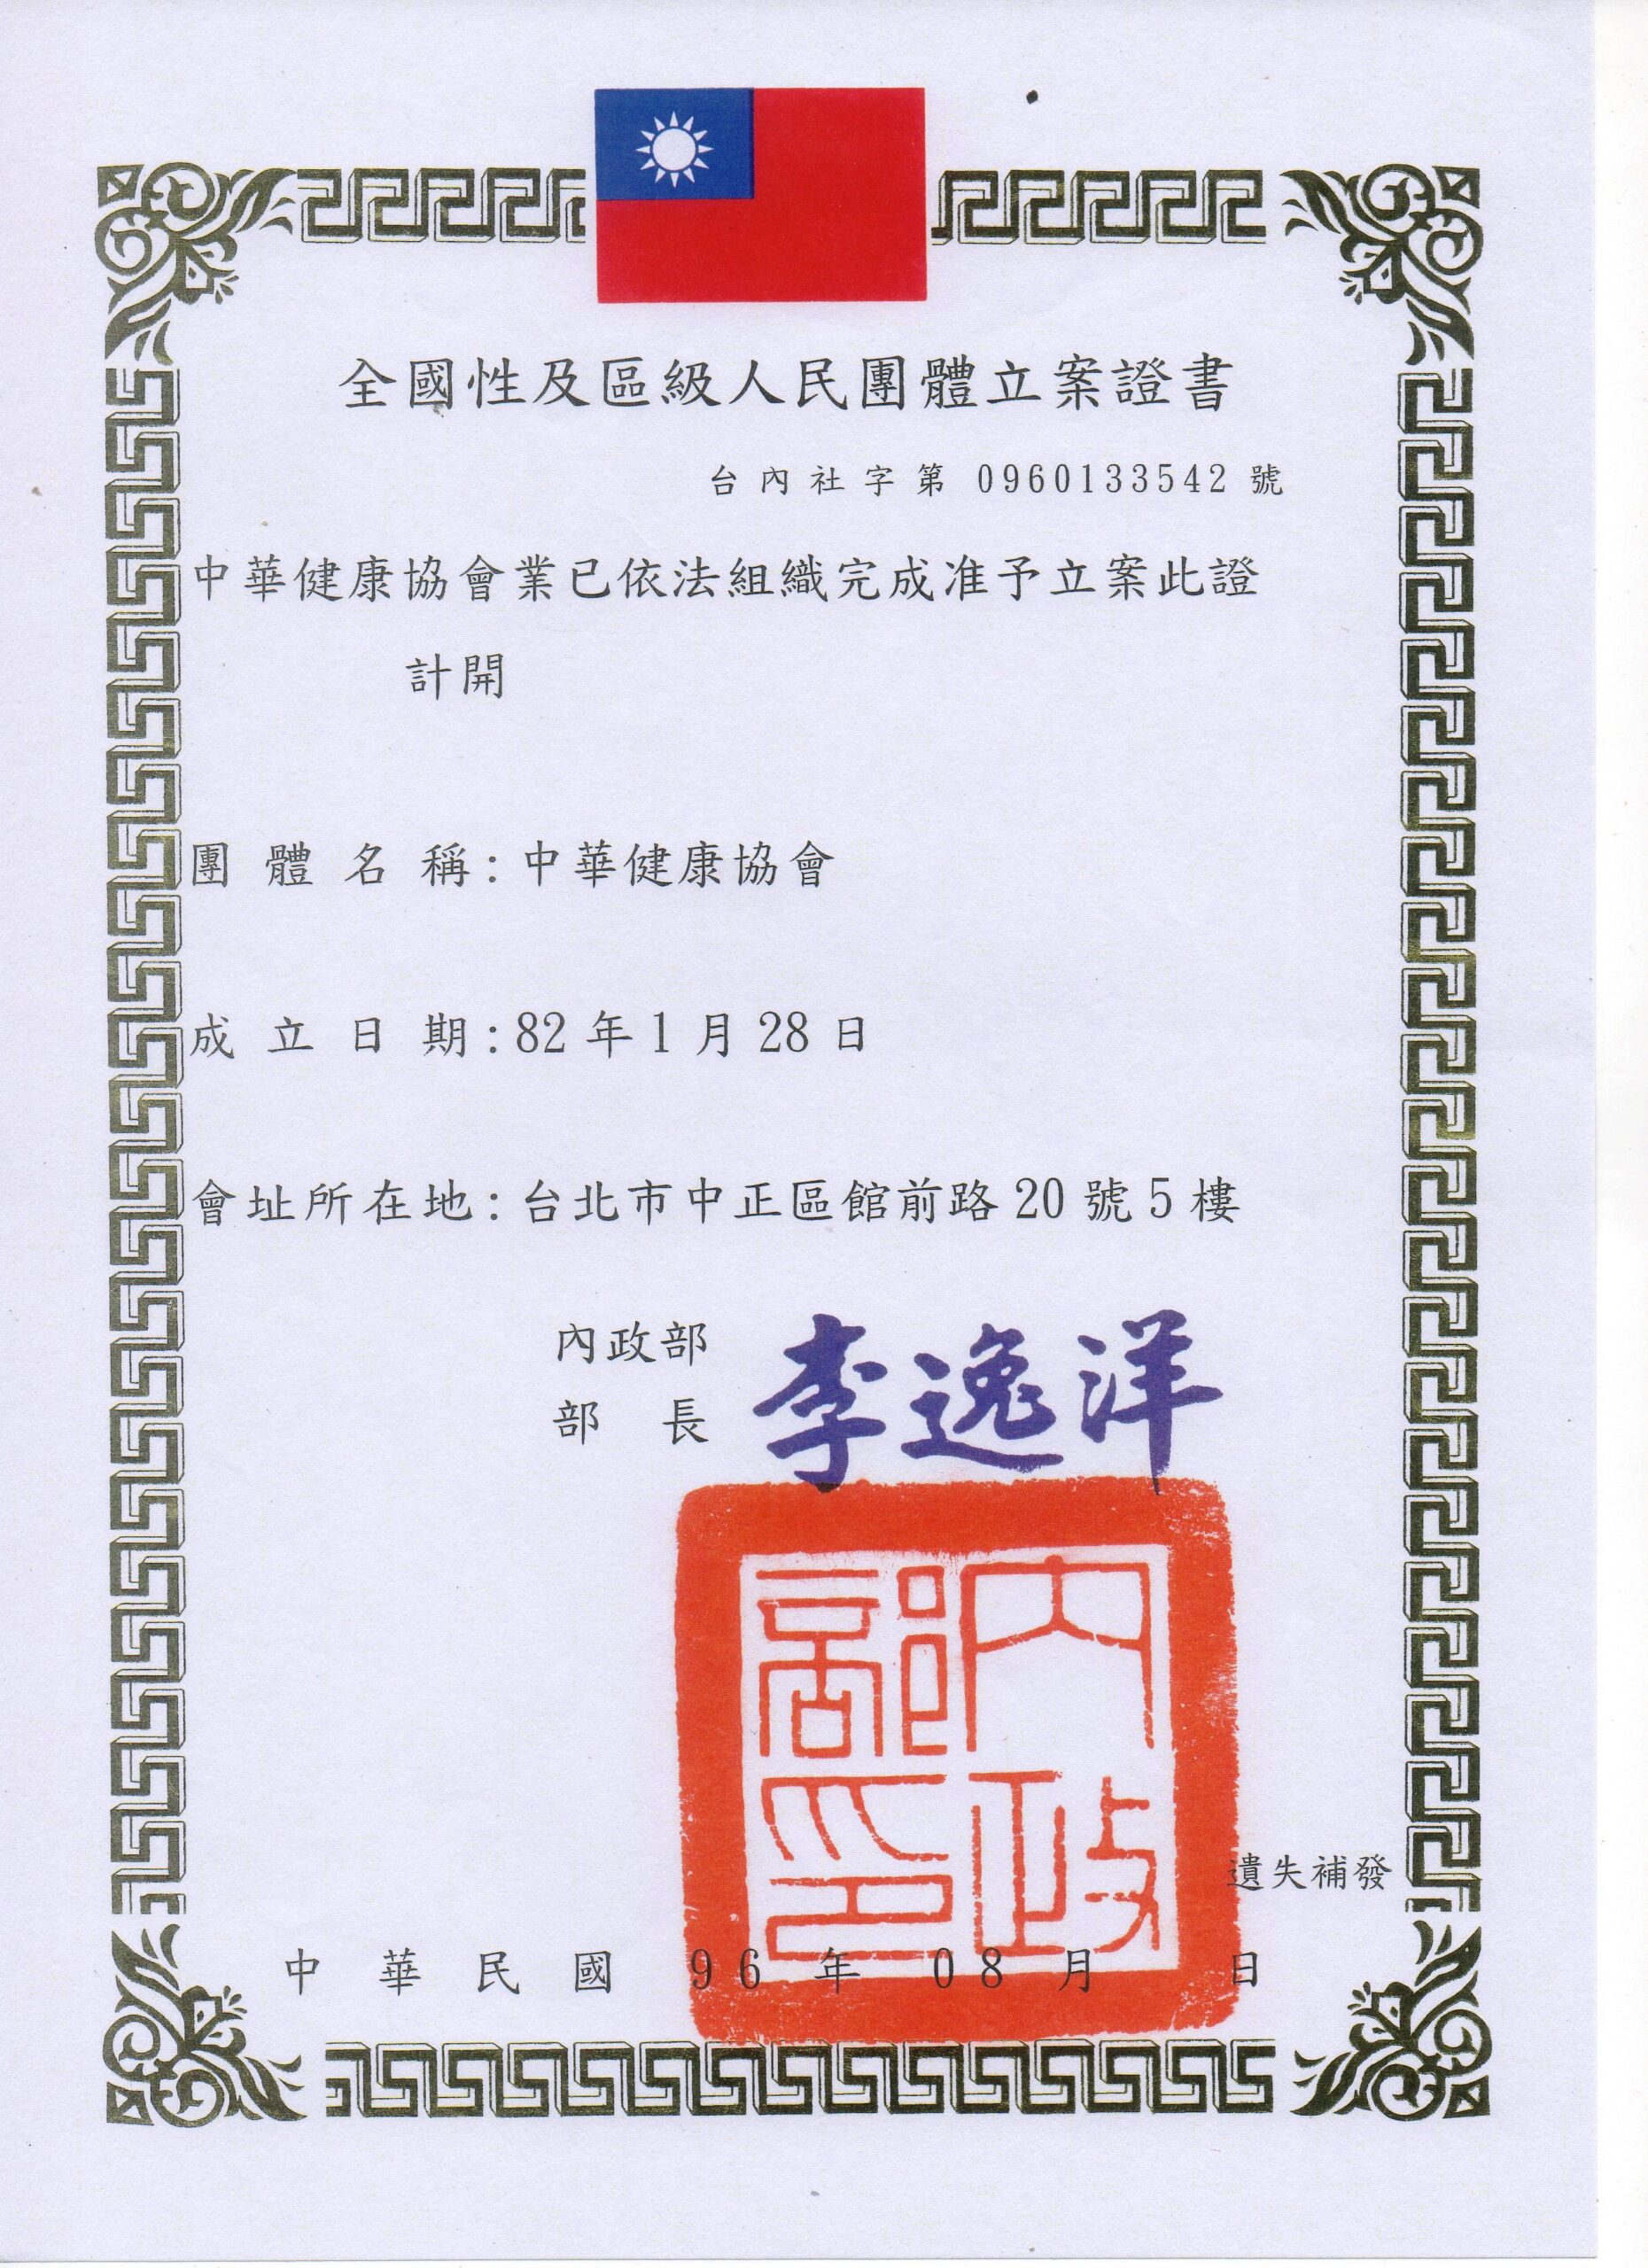 全國性及區級人民團體立案證書
台內社字第 0960133542 號
中華健康協會業已依法組織完成准予立案此證
計開
團體名稱:中華健康協會
成立日期:82年1月28日
會址所在地:台北市中正區館前路20號5樓
內政部
部長 李逸洋
內政部印
遺失補發
中華民國 96 年 08 月 日